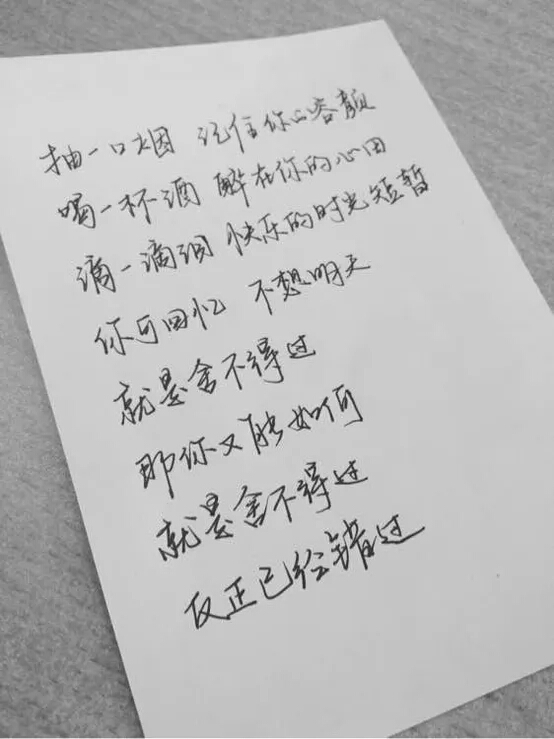 抽一口烟 记住你的容颜
喝一杯酒 醉在你的心田
滴一滴泪 快乐的时光短暂
你可回忆 不想明天
就是舍不得过
那你又能如何
就是舍不得过
反正已经错过